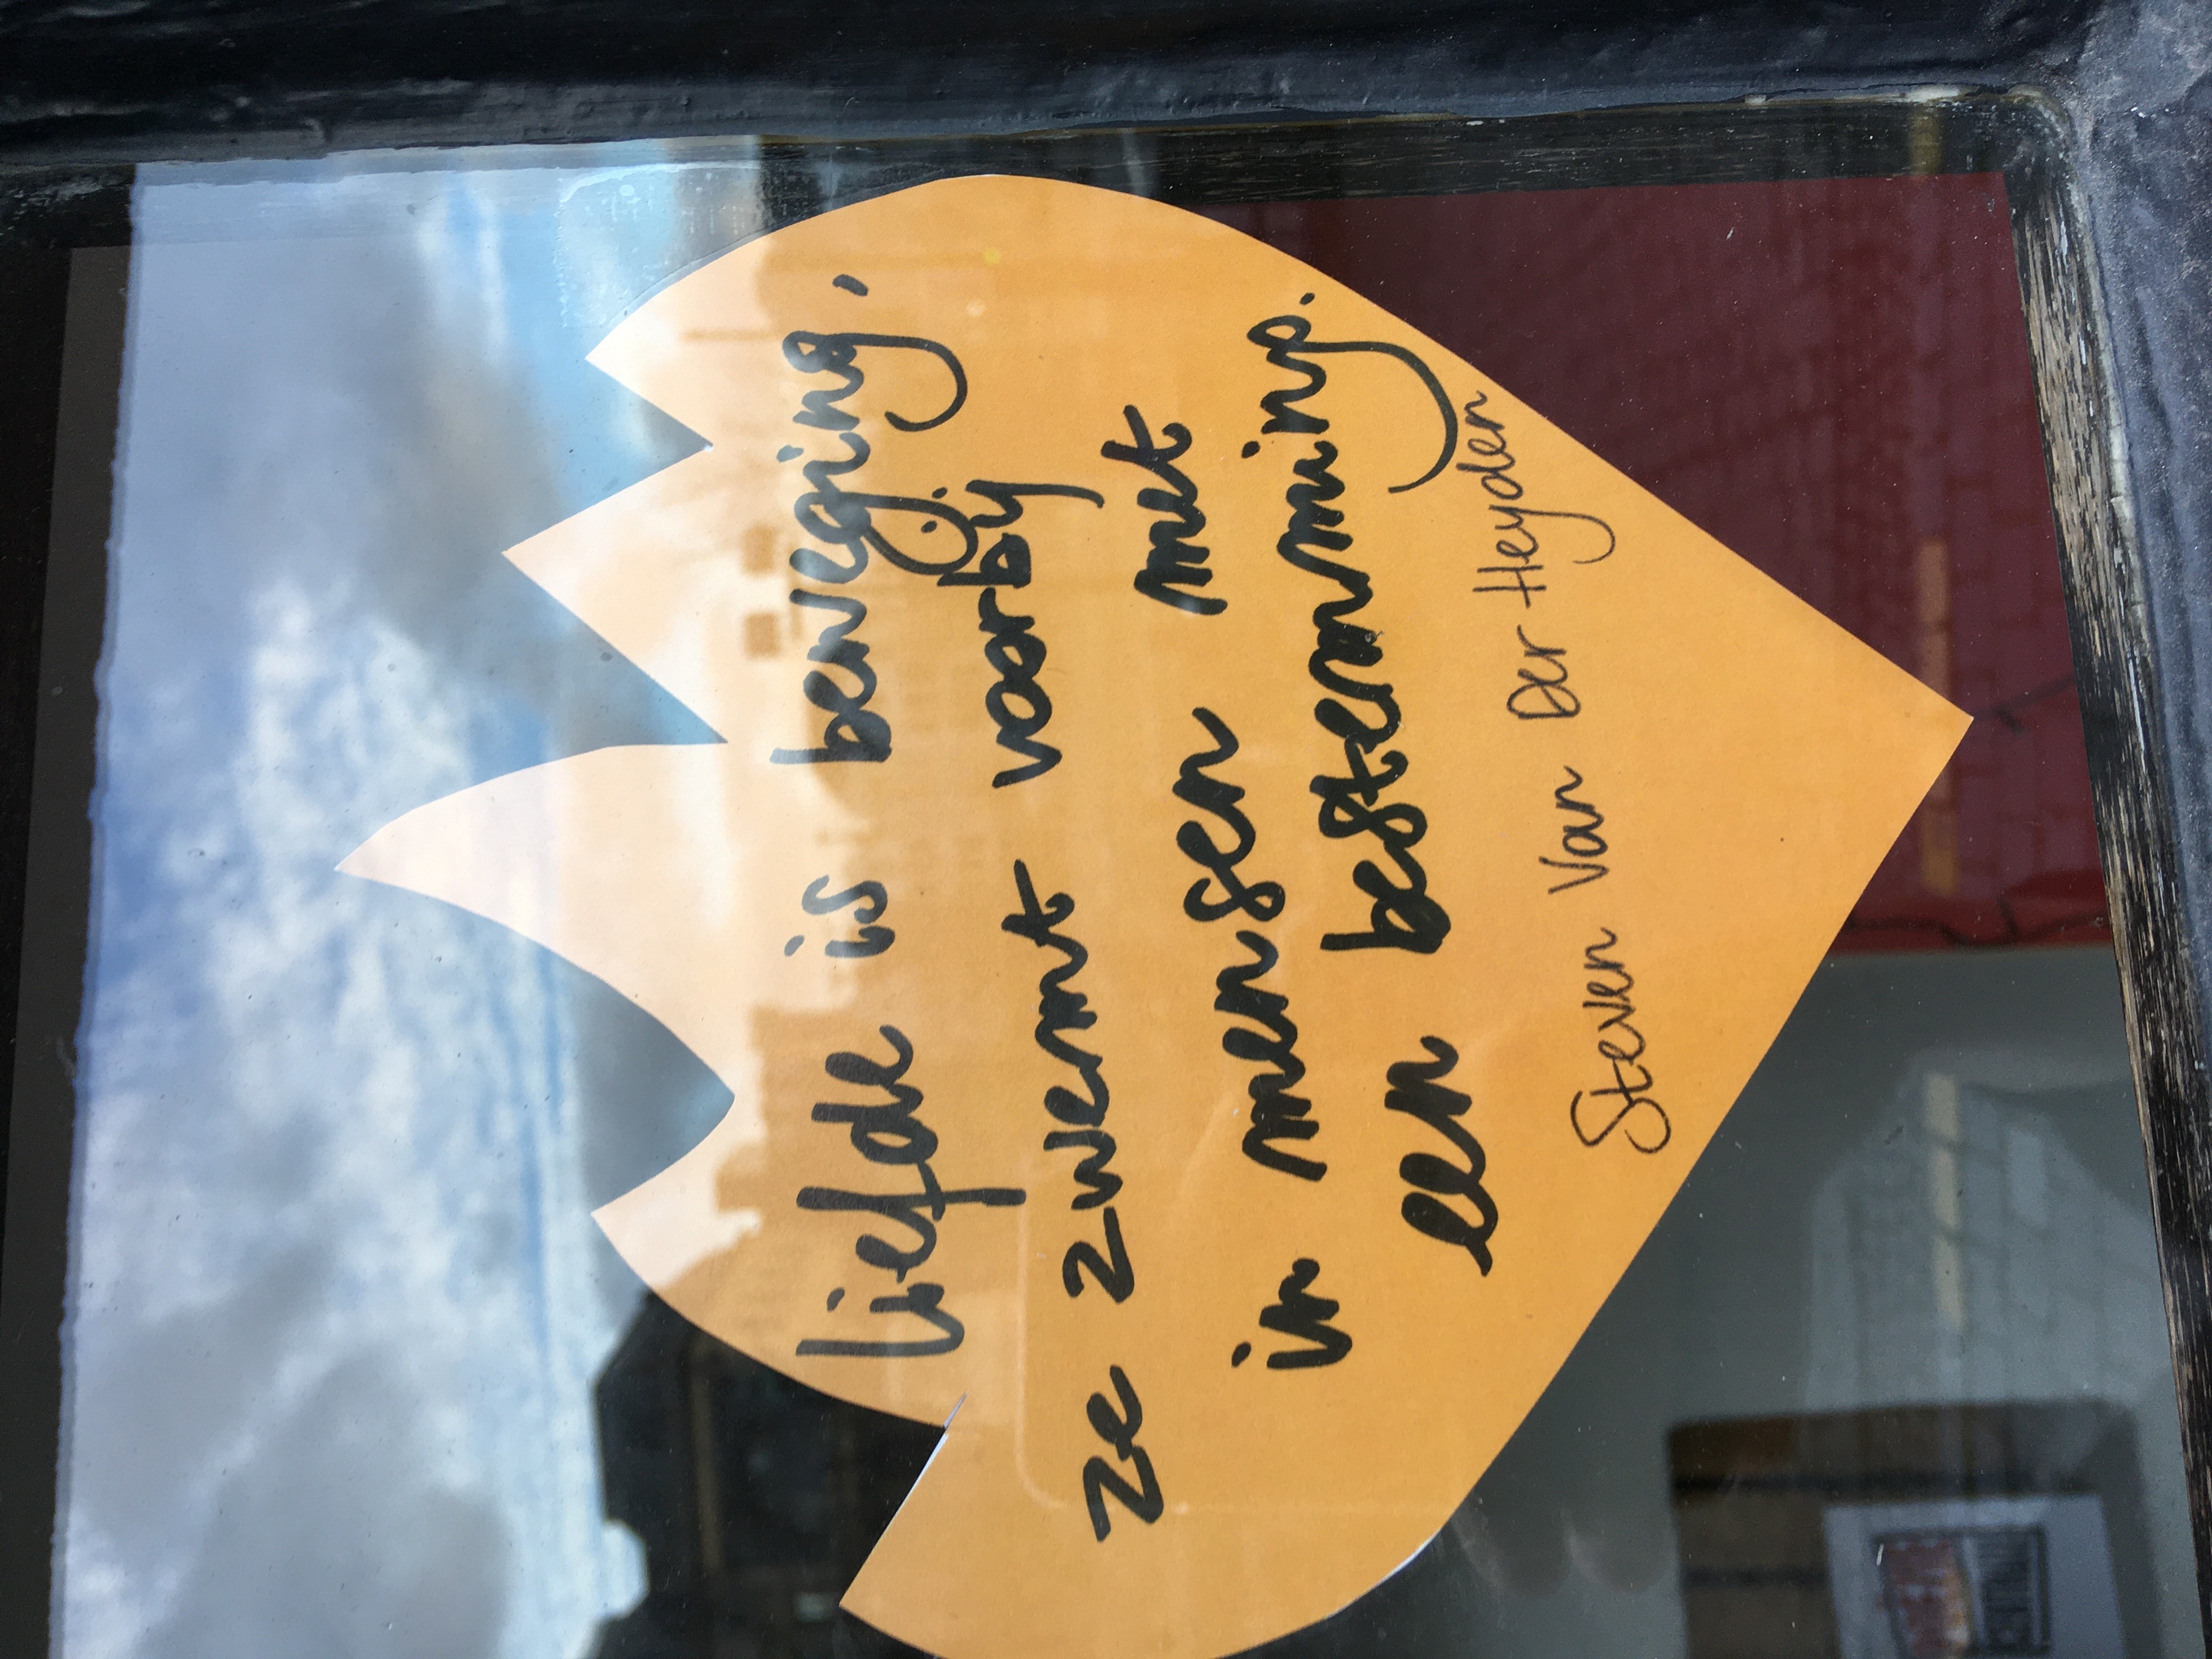 liefde is beweging,
ze zwermt voorbij
in mensen met
een bestemming.
Steven Van Der Heyden